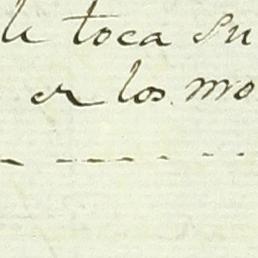 le toca su
er los mo